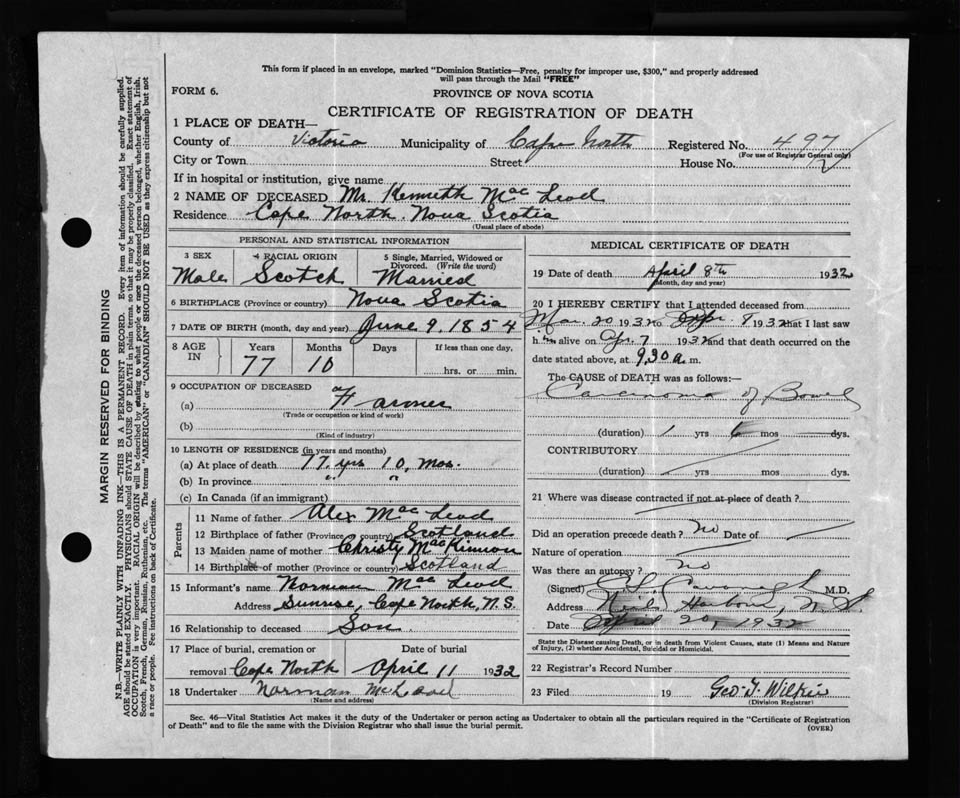 This form if placed in an envelope, marked "Dominion Statistics—Free, penalty for improper use, $300," and properly addressed
will pass through the Mail "FREE"
FORM 6.
PROVINCE OF NOVA SCOTIA
CERTIFICATE OF REGISTRATION OF DEATH
1 PLACE OF DEATH—
County of Victoria Municipality of Cape North Registered No. 497
(For use of Registrar General only)
City or Town Street House No.
If in hospital or institution, give name
2 NAME OF DECEASED Mr. Kenneth Mac Leod
Residence Cape North. Nova Scotia
(Usual place of abode)
PERSONAL AND STATISTICAL INFORMATION
3 SEX 4 RACIAL ORIGIN 5 Single, Married, Widowed or
Divorced. (Write the word)
Male Scotch Married
6 BIRTHPLACE (Province or country) Nova Scotia
7 DATE OF BIRTH (month, day and year) June 9. 1854
8 AGE IN Years Months Days If less than one day,
77 10 hrs. or min.
9 OCCUPATION OF DECEASED
(a) Farmer
(Trade or occupation or kind of work)
(b)
(Kind of industry)
10 LENGTH OF RESIDENCE (in years and months)
(a) At place of death 77 yrs 10 mos.
(b) In province " "
(c) In Canada (if an immigrant)
Parents
11 Name of father Alex Mac Leod
12 Birthplace of father (Province or country) Scotland
13 Maiden name of mother Christy MacKinnon
14 Birthplace of mother (Province or country) Scotland
15 Informant's name Norman Mac Leod
Address Sunrise, Cape North, N.S.
16 Relationship to deceased Son
17 Place of burial, cremation or Date of burial
removal Cape North April 11 1932
18 Undertaker Norman McLeod
(Name and address)
MEDICAL CERTIFICATE OF DEATH
19 Date of death April 8th 1932
(Month, day and year)
20 I HEREBY CERTIFY that I attended deceased from
Mar. 20 1932 to Apr. 8 1932 that I last saw
him alive on Apr. 7 1932 and that death occurred on the
date stated above, at 9.30 a.m.
The CAUSE of DEATH was as follows:—
Carcinoma of Bowel
(duration) 1 yrs 6 mos dys.
CONTRIBUTORY
(duration) yrs mos dys.
21 Where was disease contracted if not at place of death?
Did an operation precede death? no Date of
Nature of operation
Was there an autopsy? no
(Signed) Cavanagh M.D.
Address Neils Harbour, N.S.
Date April 20, 1932
State the Disease causing Death, or in death from Violent Causes, state (1) Means and Nature
of Injury, (2) whether Accidental, Suicidal or Homicidal.
22 Registrar's Record Number
23 Filed 19 Geo. Wilkie
(Division Registrar)
Sec. 46—Vital Statistics Act makes it the duty of the Undertaker or person acting as Undertaker to obtain all the particulars required in the "Certificate of Registration
of Death" and to file the same with the Division Registrar who shall issue the burial permit.
(OVER)
MARGIN RESERVED FOR BINDING
N.B.—WRITE PLAINLY WITH UNFADING INK—THIS IS A PERMANENT RECORD. Every item of information should be carefully supplied.
AGE should be stated EXACTLY. PHYSICIANS should STATE CAUSE OF DEATH in plain terms, so that it may be properly classified. Exact statement of
OCCUPATION is very important. RACIAL ORIGIN will be described by stating to what people or race the deceased person belonged, whether English, Irish,
Scotch, French, German, Russian, Ruthenian, etc. The terms "AMERICAN" or "CANADIAN" SHOULD NOT BE USED as they express citizenship but not
a race or people. See instructions on back of Certificate.